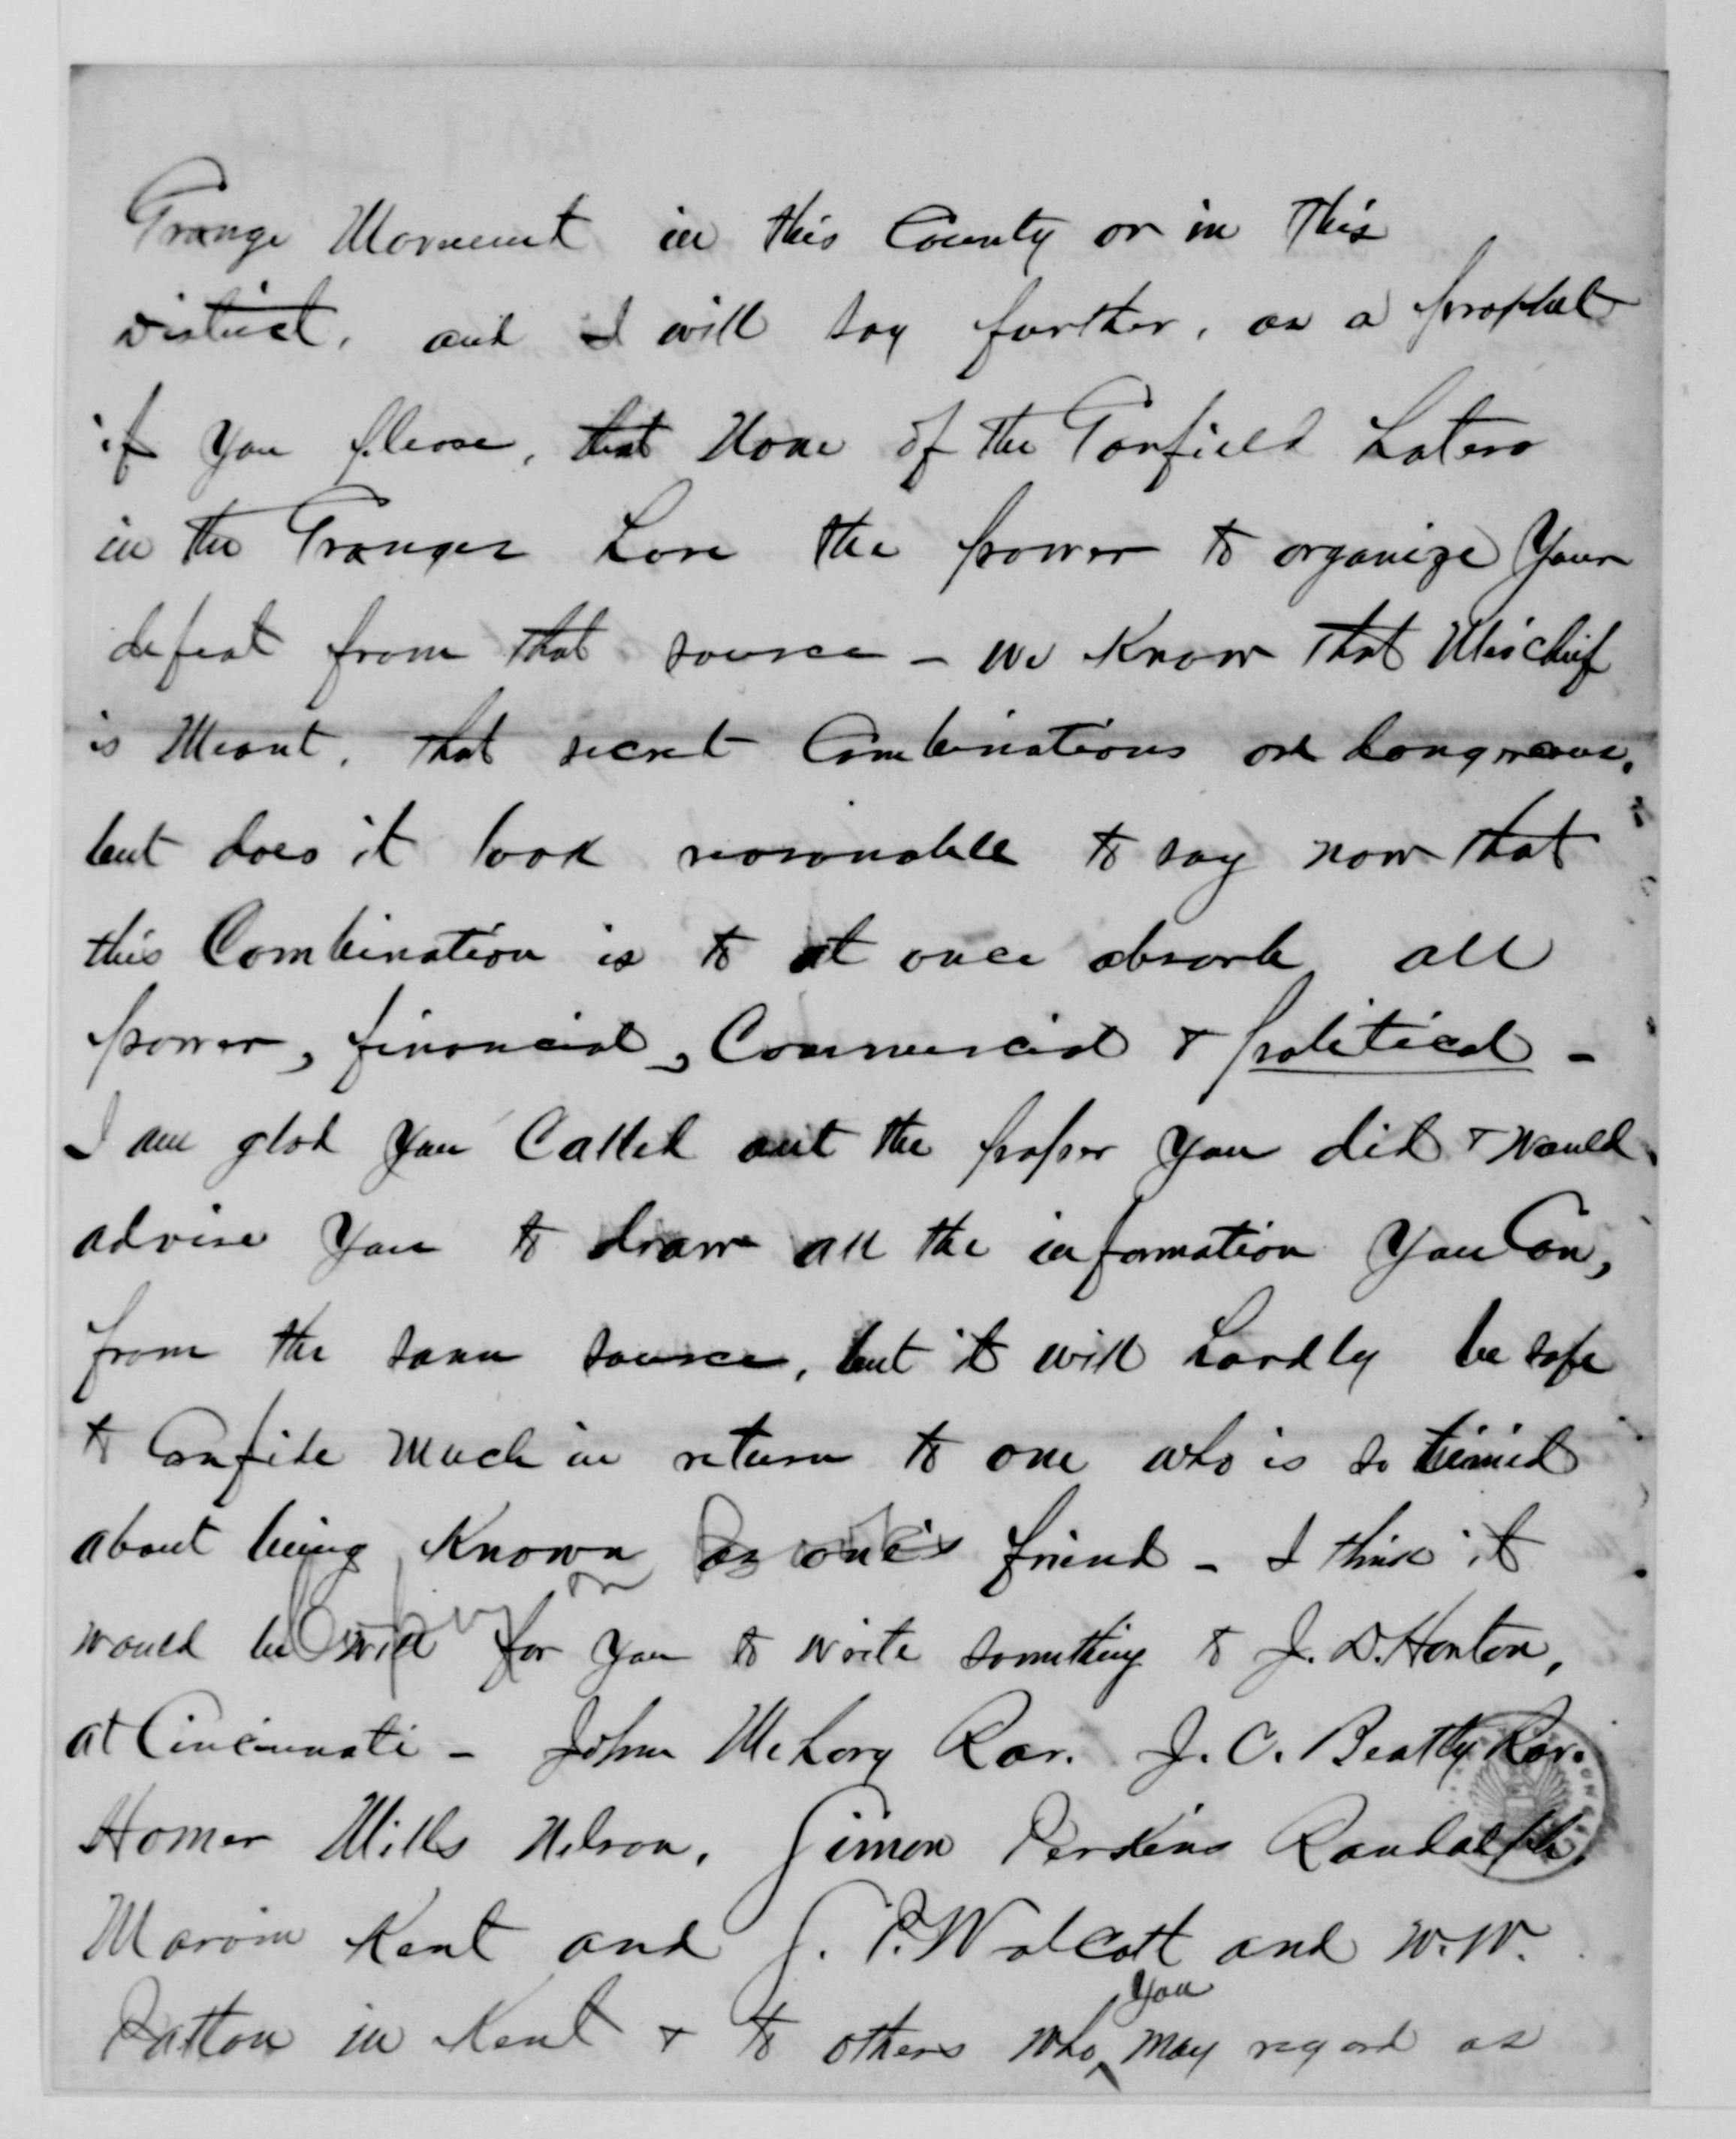 Grange Movement in this County or in this
District, and I will say further, as a prophet
if you please, that None of the Garfield haters
in the Granges have the power to organize your
defeat from that source - we know that Mischief
is Meant, that secret Combinations are dangerous,
but does it look reasonable to say now that
this Combination is to at once absorb all
power, financial, Commercial & political -
I am glad you Called out the paper you did & would
advise you to draw all the information you Can,
from the same source, but it will hardly be safe
to Confide Much in return to one who is so timid
about being Known as one's friend - I think it
would be well for you to write something to J. D. Horton,
at Cincinnati - John McLory Rav. J. C. Beatty Rav.
Homer Mills Nelson, Simon Perkins Randolph,
Marvin Kent and S. P. Wolcott and W. W.
Patton in Kent & to others who you may regard as